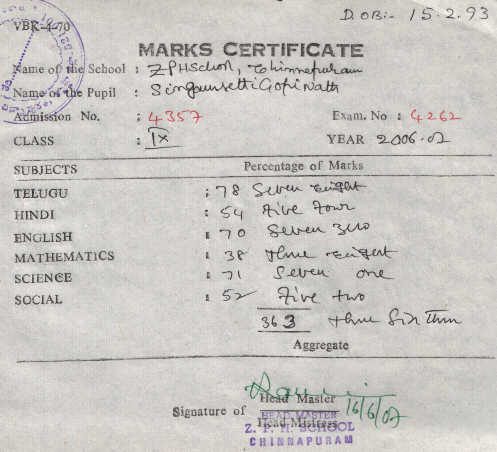 D.OB:- 15.2.93
VBK-4-70
MARKS CERTIFICATE
Name of the School : ZPHSchool, Chinnapuram
Name of the Pupil : Singamsetti Gopi Nath
Admission No. : 4357 Exam. No : 4262
CLASS : IX YEAR 2006.07
SUBJECTS Percentage of Marks
TELUGU : 78 Seven eight
HINDI : 54 Five Four
ENGLISH : 70 Seven zero
MATHEMATICS : 38 three eight
SCIENCE : 71 Seven one
SOCIAL : 52 Five two
363 three Six Three
Aggregate
Signature of Head Master
16/6/07
HEAD MASTER
Head Mistress
Z. P. H. SCHOOL
CHINNAPURAM